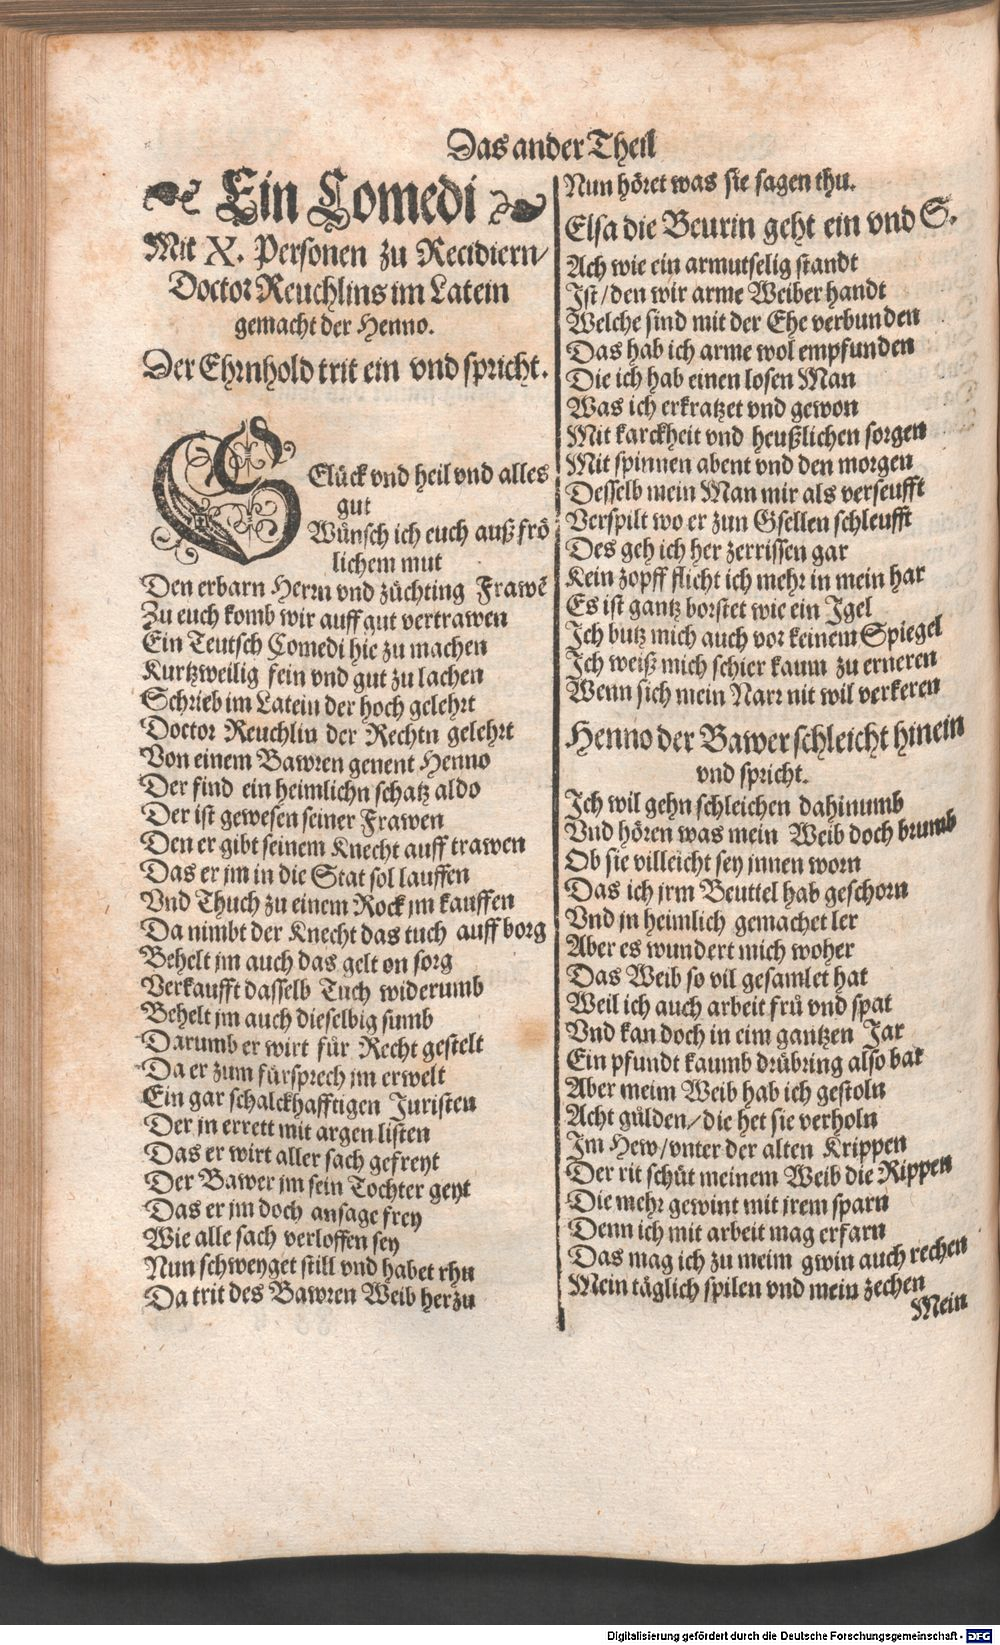 Das ander Theil
Ein Comedi
Mit X. Personen zu Recidiern/
Doctor Reuchlins im Latein
gemacht der Henno.
Der Ehrnhold trit ein vnd spricht.
GElück vnd heil vnd alles
gut
Wünsch ich euch auß frö
lichem mut
Den erbarn Herrn vnd züchting Frawē
Zu euch komb wir auff gut vertrawen
Ein Teutsch Comedi hie zu machen
Kurtzweilig fein vnd gut zu lachen
Schrieb im Latein der hoch gelehrt
Doctor Reuchlin der Rechtn gelehrt
Von einem Bawren genent Henno
Der find ein heimlichn schatz aldo
Der ist gewesen seiner Frawen
Den er gibt seinem Knecht auff trawen
Das er jm in die Stat sol lauffen
Vnd Thuch zu einem Rock jm kauffen
Da nimbt der Knecht das tuch auff borg
Behelt jm auch das gelt on sorg
Verkaufft dasselb Tuch widerumb
Behelt jm auch dieselbig sumb
Darumb er wirt für Recht gestelt
Da er zum fürsprech jm erwelt
Ein gar schalckhafftigen Juristen
Der jn errett mit argen listen
Das er wirt aller sach gefreyt
Der Bawer jm sein Tochter geyt
Das er jm doch ansage frey
Wie alle sach verloffen sey
Nun schweyget still vnd habet rhu
Da trit des Bawren Weib herzu
Nun höret was sie sagen thu.
Elsa die Beurin geht ein vnd S.
Ach wie ein armutselig standt
Ist/den wir arme Weiber handt
Welche sind mit der Ehe verbunden
Das hab ich arme wol empfunden
Die ich hab einen losen Man
Was ich erkratzet vnd gewon
Mit karckheit vnd heußlichen sorgen
Mit spinnen abent vnd den morgen
Desselb mein Man mir als verseufft
Verspilt wo er zun Gsellen schleufft
Des geh ich her zerrissen gar
Kein zopff flicht ich mehr in mein har
Es ist gantz borstet wie ein Igel
Ich butz mich auch vor keinem Spiegel
Ich weiß mich schier kaum zu erneren
Wenn sich mein Narr nit wil verkeren
Henno der Bawer schleicht hinein
vnd spricht.
Ich wil gehn schleichen dahinumb
Vnd hören was mein Weib doch brumb
Ob sie villeicht sey jnnen worn
Das ich jrm Beuttel hab geschorn
Vnd jn heimlich gemachet ler
Aber es wundert mich woher
Das Weib so vil gesamlet hat
Weil ich auch arbeit frü vnd spat
Vnd kan doch in eim gantzen Jar
Ein pfundt kaumb drübring also bar
Aber meim Weib hab ich gestoln
Acht gülden/die het sie verholn
Im Hew/vnter der alten Krippen
Der rit schüt meinem Weib die Rippen
Die mehr gewint mit jrem sparn
Denn ich mit arbeit mag erfarn
Das mag ich zu meim gwin auch rechen
Mein täglich spilen vnd mein zechen
Mein
Digitalisierung gefördert durch die Deutsche Forschungsgemeinschaft - DFG